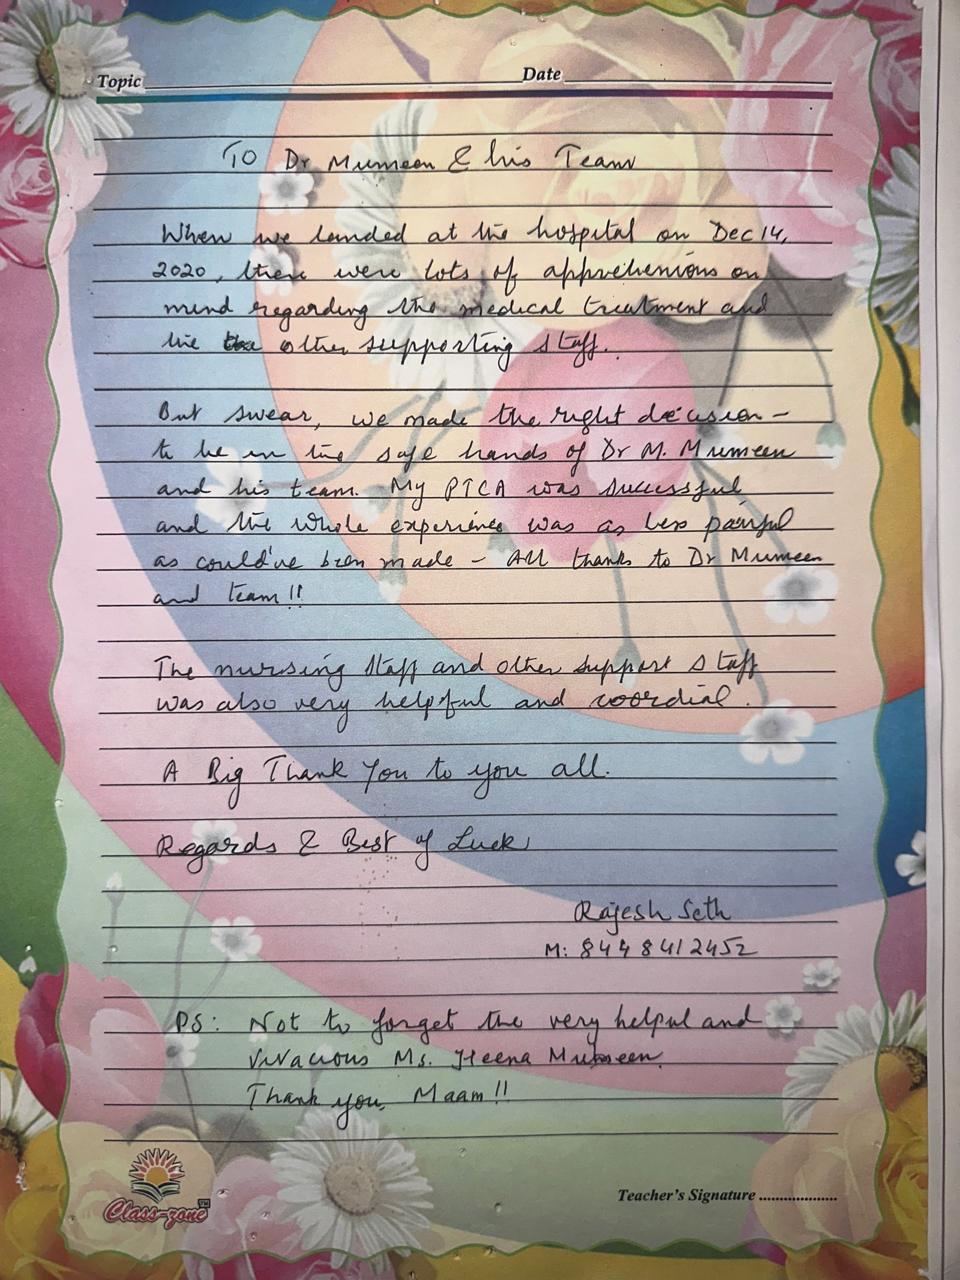 Topic
Date
TO Dr Mumeen & his Team
When we landed at the hospital on Dec 14,
2020, there were lots of apprehensions on
mind regarding the medical treatment and
the other supporting staff.
But swear, we made the right decision -
to be in the safe hands of Dr M. Mumeen
and his team. My PTCA was successful
and the whole experience was as less painful
as could've been made - All thanks to Dr Mumeen
and team!!
The nursing staff and other support staff
was also very helpful and coordial.
A Big Thank You to you all.
Regards & Best of Luck
Rajesh Seth
M: 8448412452
PS: Not to forget the very helpul and
vivacious Ms. Heena Mumeen.
Thank you, Maam!!
Class-zone TM
Teacher's Signature ....................